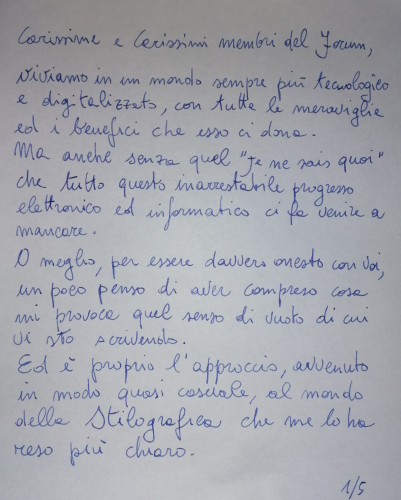 Carissime e Carissimi membri del Forum,
viviamo in un mondo sempre più tecnologico
e digitalizzato, con tutte le meraviglie
ed i benefici che esso ci dona.
Ma anche senza quel "Je ne sais quoi"
che tutto questo inarrestabile progresso
elettronico ed informatico ci fa venire a
mancare.
O meglio, per essere davvero onesto con voi,
un poco penso di aver compreso cosa
mi provoca quel senso di vuoto di cui
vi sto scrivendo.
Ed è proprio l'approccio, avvenuto
in modo quasi casuale, al mondo
della Stilografica che me lo ha
reso più chiaro.
1/5